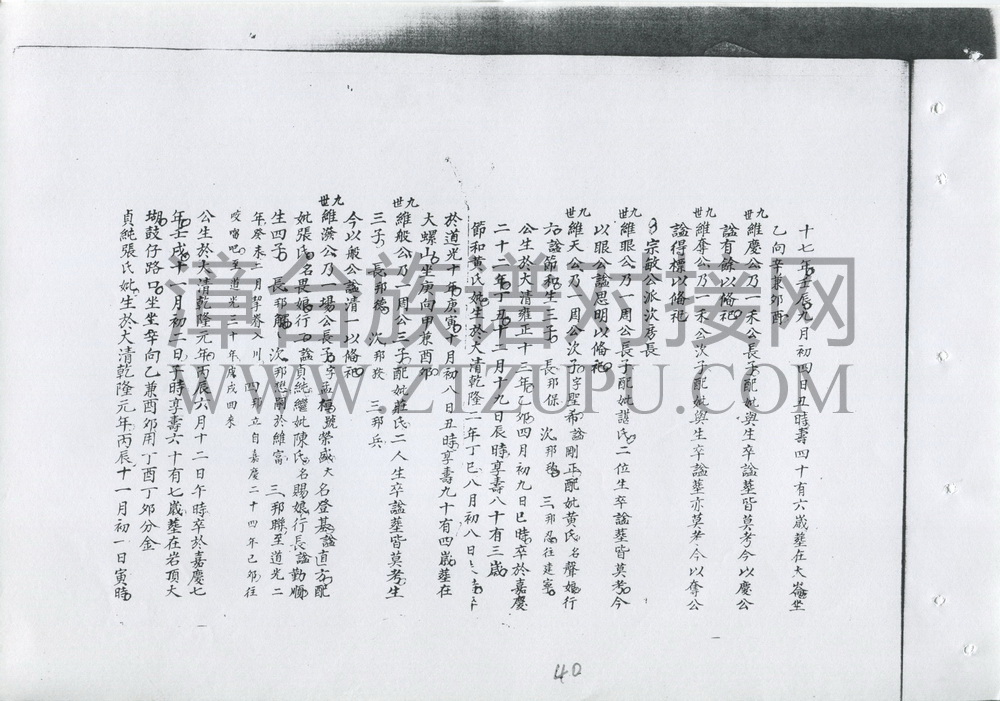 十七年壬辰九月初四日丑時壽四十有六歲塟在大崙坐
乙向辛兼夘酉
九世 維慶公乃一禾公長子配妣與生卒諡塟皆莫考今以慶公
諡有餘以脩祀
九世 維奪公乃一禾公次子配妣與生卒諡塟亦莫考今以奪公
諡得標以脩祀
宗敏公派次房長
九世 維眼公乃一周公長子配妣諶氏二位生卒諡塟皆莫考今
以眼公諡思明以脩祀
九世 維天公乃一周公次子字聖希諡剛正配妣黃氏名聲娘行
六諡節和生三子 長邦保 次邦 三邦忍往建寧
公生於大清雍正十三年乙夘四月初九日巳時卒於嘉慶
二十二年丁丑十二月十九日辰時享壽八十有三歲
節和黃氏妣生於大清乾隆二年丁巳八月初八日 時卒
於道光十年庚寅十月初八日丑時享壽九十有四歲塟在
大螺山坐庚向甲兼酉夘
九世 維般公乃一周公三子配妣莊氏二人生卒諡塟皆莫考生
三子 長邦德 次邦 三邦兵
今以般公諡清一以脩祀
九世 維漢公乃一場公長子字孟 號榮盛大名登基諡直方配
妣張氏名畏娘行 諡貞純繼妣陳氏名賜娘行長諡勤順
生四子 長邦 次邦 關於維富 三邦聯至道光二
年癸未二月挈眷入川 四邦立自嘉慶二十四年己夘往
咬𠺕吧至道光三十年庚戌回來
公生於大清乾隆元年丙辰六月十二日午時卒於嘉慶七
年壬戌十一月初二日子時享壽六十有七歲塟在岩頂大
蝴鼓仔路口坐坐辛向乙兼酉夘用丁酉丁夘分金
貞純張氏妣生於大清乾隆元年丙辰十一月初一日寅時
40
漳台族谱对接网
WWW.ZTZUPU.COM